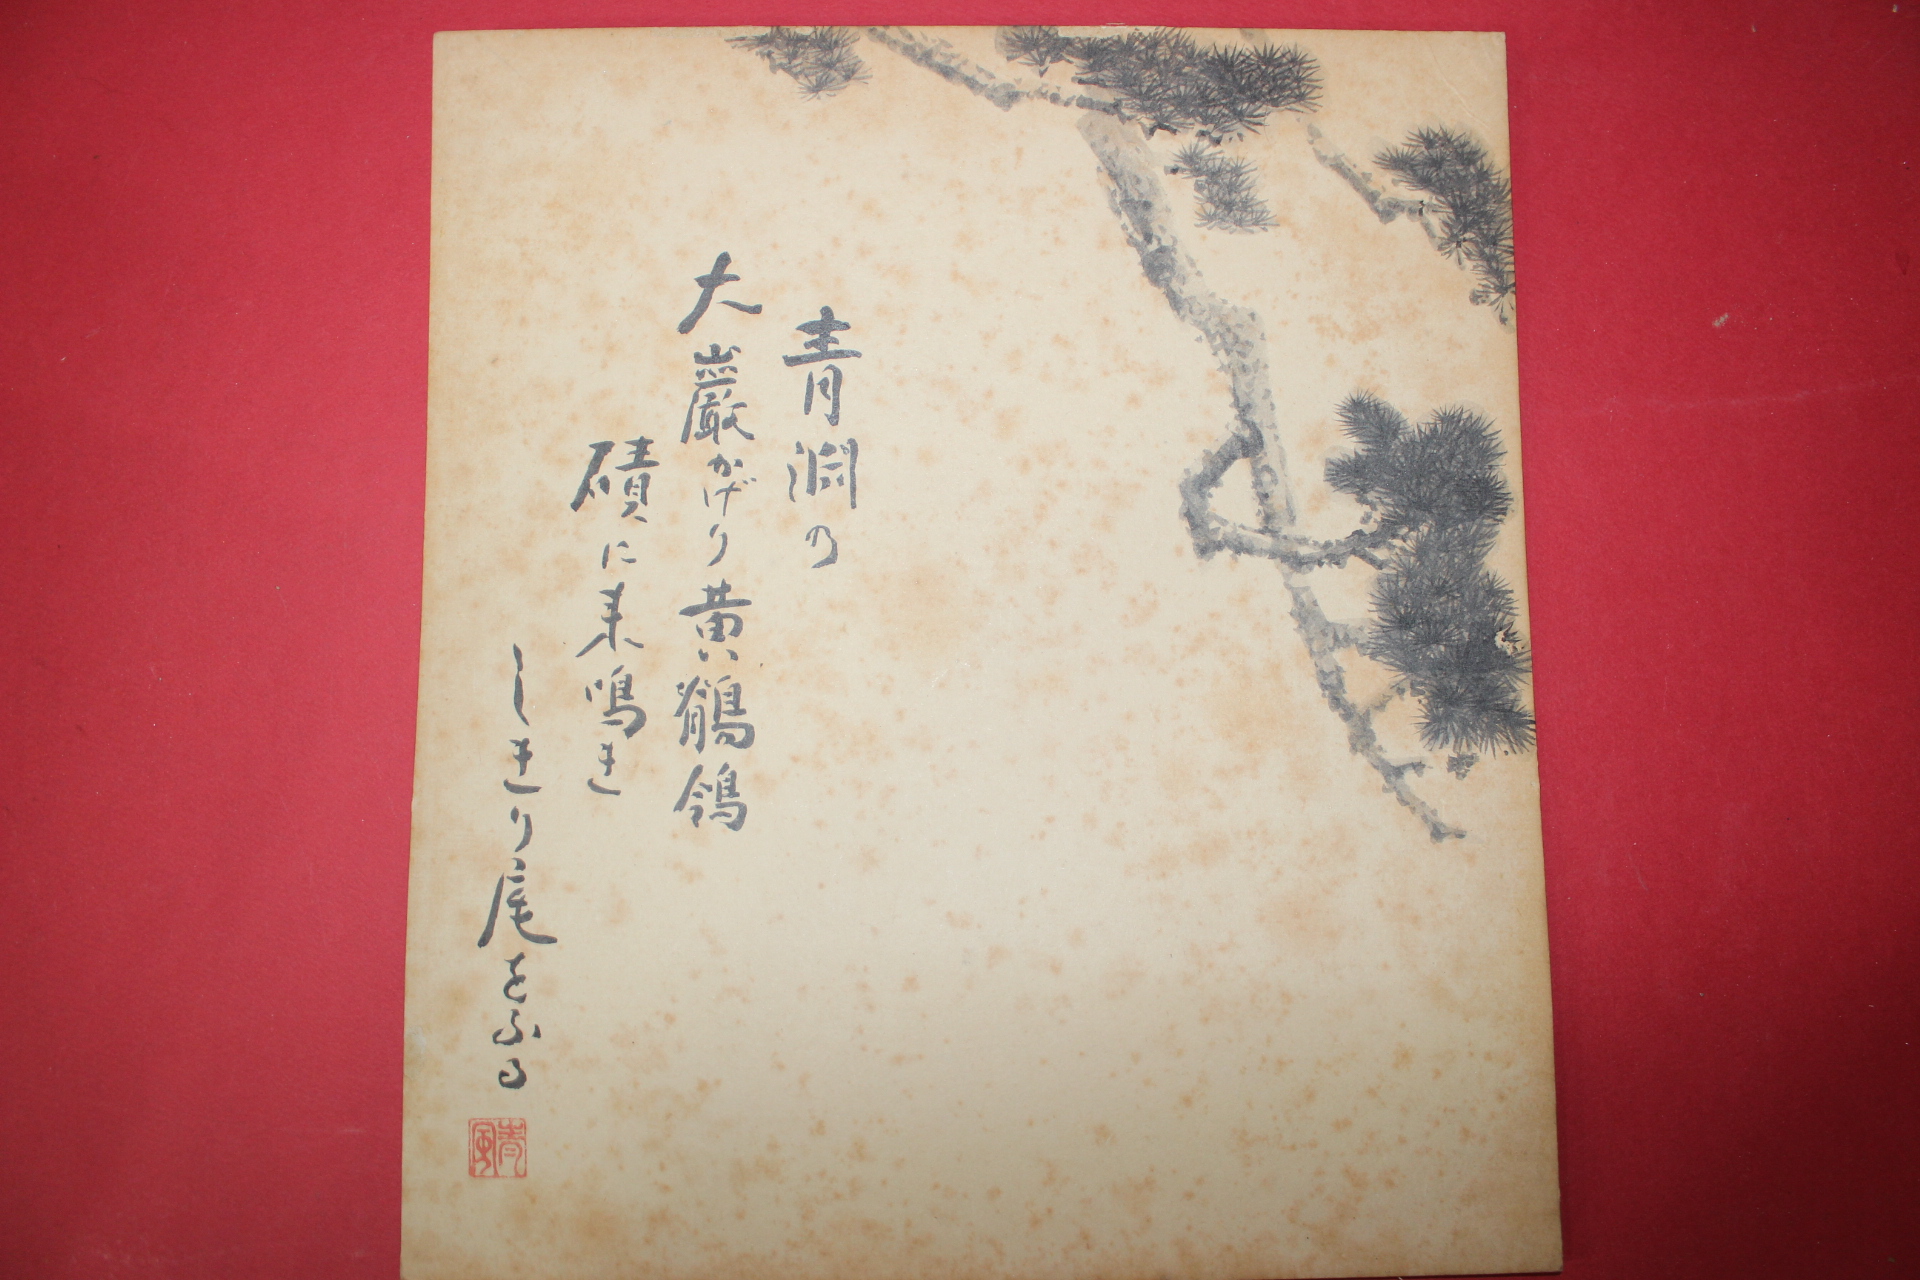 青淵の
大巖かげり黄鶺鴒
磧に来鳴き
しきり尾をふる